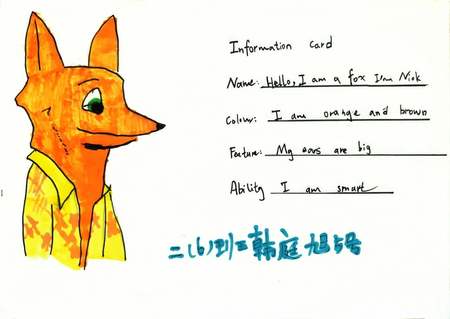 Information card
Name: Hello, I am a fox I'm Nick
Colour: I am orange and brown
Feature: My ears are big
Ability I am smart
二(6)班 韩庭旭 5号